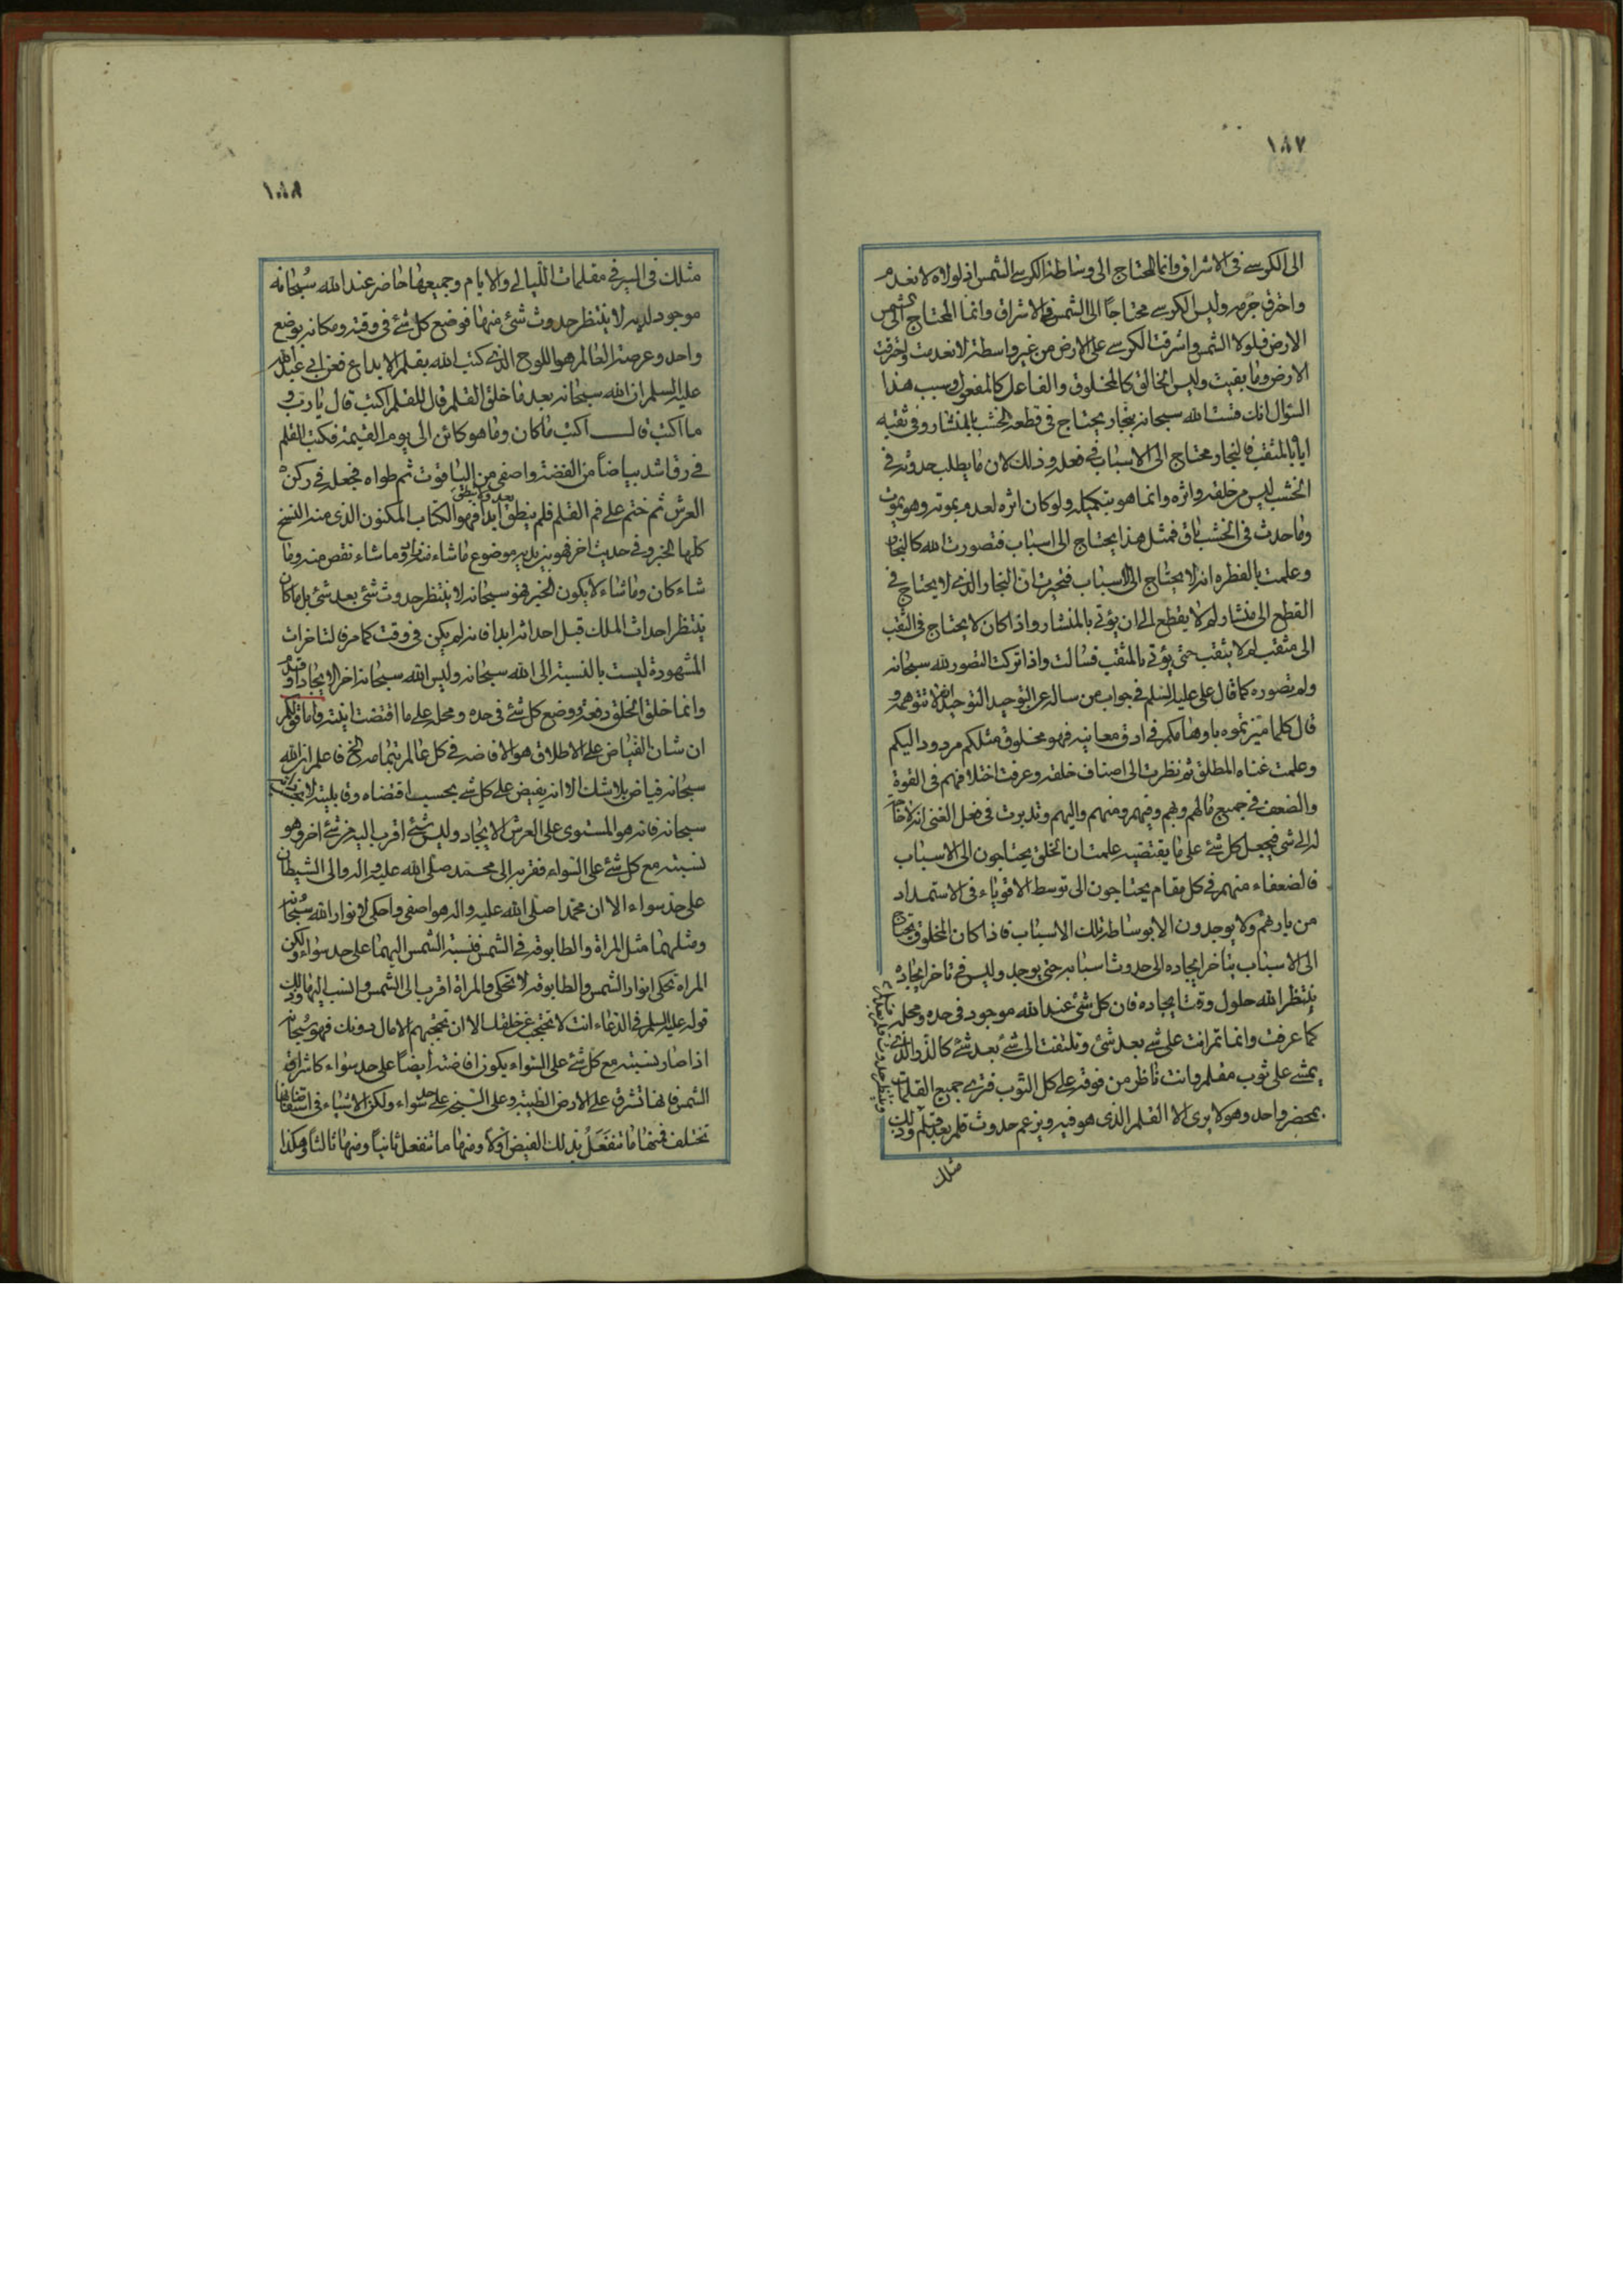 ١٨٧
الى الكرسي في الاشراق وانما المحتاج الى وساطة الكرسي الشمس اذ لولاه لانعدم
واحترق جرمه وليس الكرسي محتاجًا الى الشمس في الاشراق وانما المحتاج الى الشمس
الارض فلولا الشمس واشرقت الكرسي على الارض من غير واسطة لانعدمت واحترقت
الارض وما بقيت وليس الخالق كالمخلوق والفاعل كالمفعول وسبب هذا
السؤال انك قست الله سبحانه بنجار يحتاج في قطعه الخشب بالمنشار وفي ثقبه
اياه بالمثقب فالنجار محتاج الى الاسباب في فعله وذلك لان ما يطلب حدوثه في
الخشب ليس من خلقه واثره وانما هو بتكميله ولو كان اثره لعدم بموته وهو يموت
وما حدث في الخشب باق فمثل هذا يحتاج الى اسباب فتصورت الله كالنجار
وعلمت بالفطره انه لا يحتاج الى الاسباب فتحيرت ان النجار الذي لا يحتاج في
القطع الى منشار لم لا يقطع الى ان يؤتى بالمنشار واذا كان لا يحتاج في الثقب
الى مثقب لم لا يثقب حتى يؤتى بالمثقب فسالت واذا تركت التصور لله سبحانه
ولم تصوره كما قال علي عليه السلم في جواب من ساله عن التوحيد التوحيد ان لا تتوهمه و
قال كلما ميزتموه باوهامكم في ادق معانيه فهو مخلوق مثلكم مردود اليكم
وعلمت غناه المطلق ثم نظرت الى اصناف خلقه وعرفت اختلافهم في القوة
والضعف في جميع مالهم وبهم وفيهم ومنهم واليهم وتدبرت في فعل الغني انه لا حاجة
له الى شئ فيجعل كل شئ على ما يقتضيه علمت ان الخلق يحتاجون الى الاسباب
فالضعفاء منهم في كل مقام يحتاجون الى توسط الاقوياء في الاستمداد
من بارئهم ولا يوجدون الا بوساطة تلك الاسباب فاذا كان المخلوق يحتاج
الى الاسباب يتاخر ايجاده الى حدوث اسبابه حتى يوجد وليس في تاخر ايجاده
ينتظر الله حلول وقت ايجاده فان كل شئ عند الله موجود في حده ومحله
كما عرفت وانما تمر انت على شئ بعد شئ وتلتفت الى شئ بعد شئ كالذر الذي
يمشي على ثوب مقلم وانت ناظر من فوقه على كل الثوب فترى جميع القلمات
بمحضر واحد وهو لا يرى الا القلم الذي هو فيه ويزعم حدوث قلم بعد قلم وذلك
مثلك
١٨٨
مثلك في السير في مقلمات الليالي والايام وجميعها حاضر عند الله سبحانه
موجود لديه لا ينتظر حدوث شئ منها فوضع كل شئ في وقته ومكانه بوضع
واحد وعرصة العالم هو اللوح الذي كتب الله بقلم الابداع فعن ابي عبد الله
عليه السلم ان الله سبحانه بعد ما خلق القلم قال للقلم اكتب قال يا رب و
ما اكتب قال اكتب ما كان وما هو كائن الى يوم القيمة فكتب القلم
في رق اشد بياضاً من الفضة واصفى من الياقوت ثم طواه فجعله في ركن
العرش ثم ختم على فم القلم فلم ينطق بعد ولا ينطق ابدا فهو الكتاب المكنون الذي منه النسخ
كلها الخبر وفي حديث اخر فهو بين يديه موضوع ما شاء منه زاد وما شاء نقص منه وما
شاء كان وما شاء لا يكون الخبر فهو سبحانه لا ينتظر حدوث شئ بعد شئ بل ما كان
ينتظر احداث الملك قبل احداثه ابدا فانه لم يكن في وقت كما مر فالتاخرات
المشهودة ليست بالنسبة الى الله سبحانه وليس الله سبحانه اخر الايجاد
وانما خلق الخلق دفعة ووضع كل شئ في حده ومحله على ما اقتضت ابنيته واما قولكم
ان شان الفياض على الاطلاق هو الافاضه في كل عالم بتمامه الخ فاعلم ان الله
سبحانه فياض بلا شك الا انه يفيض على كل شئ بحسب اقتضاه وقابليته
سبحانه فانه هو المستوي على العرش الايجاد وليس شئ اقرب اليه من شئ اخر وهو
نسبته مع كل شئ على السواء فقربه الى محمد صلى الله عليه واله والى الشيطان
على حد سواء الا ان محمدا صلى الله عليه واله هو اصفى واحكى لانوار الله سبحانه
ومثلهما مثل المراة والطابوقه في الشمس فنسبة الشمس اليهما على حد سواء ولكن
المراه تحكي انوار الشمس والطابوقه لا تحكي فالمراة اقرب الى الشمس وانسب اليها وذلك
قوله عليه السلم في الدعاء انت لا تحتجب عن خلقك الا ان تحجبهم الامال دونك فهو سبحانه
اذا صار نسبته مع كل شئ على السواء يكون افاضته ايضاً على حد سواء كاشراق
الشمس فانها تشرق على الارض الطيبة وعلى السبخ على حد سواء ولكن الاشياء في استفاضاتها
تختلف فمنها ما تنفعل بذلك الفيض اولاً ومنها ما تنفعل ثانياً ومنها ثالثا وهكذا